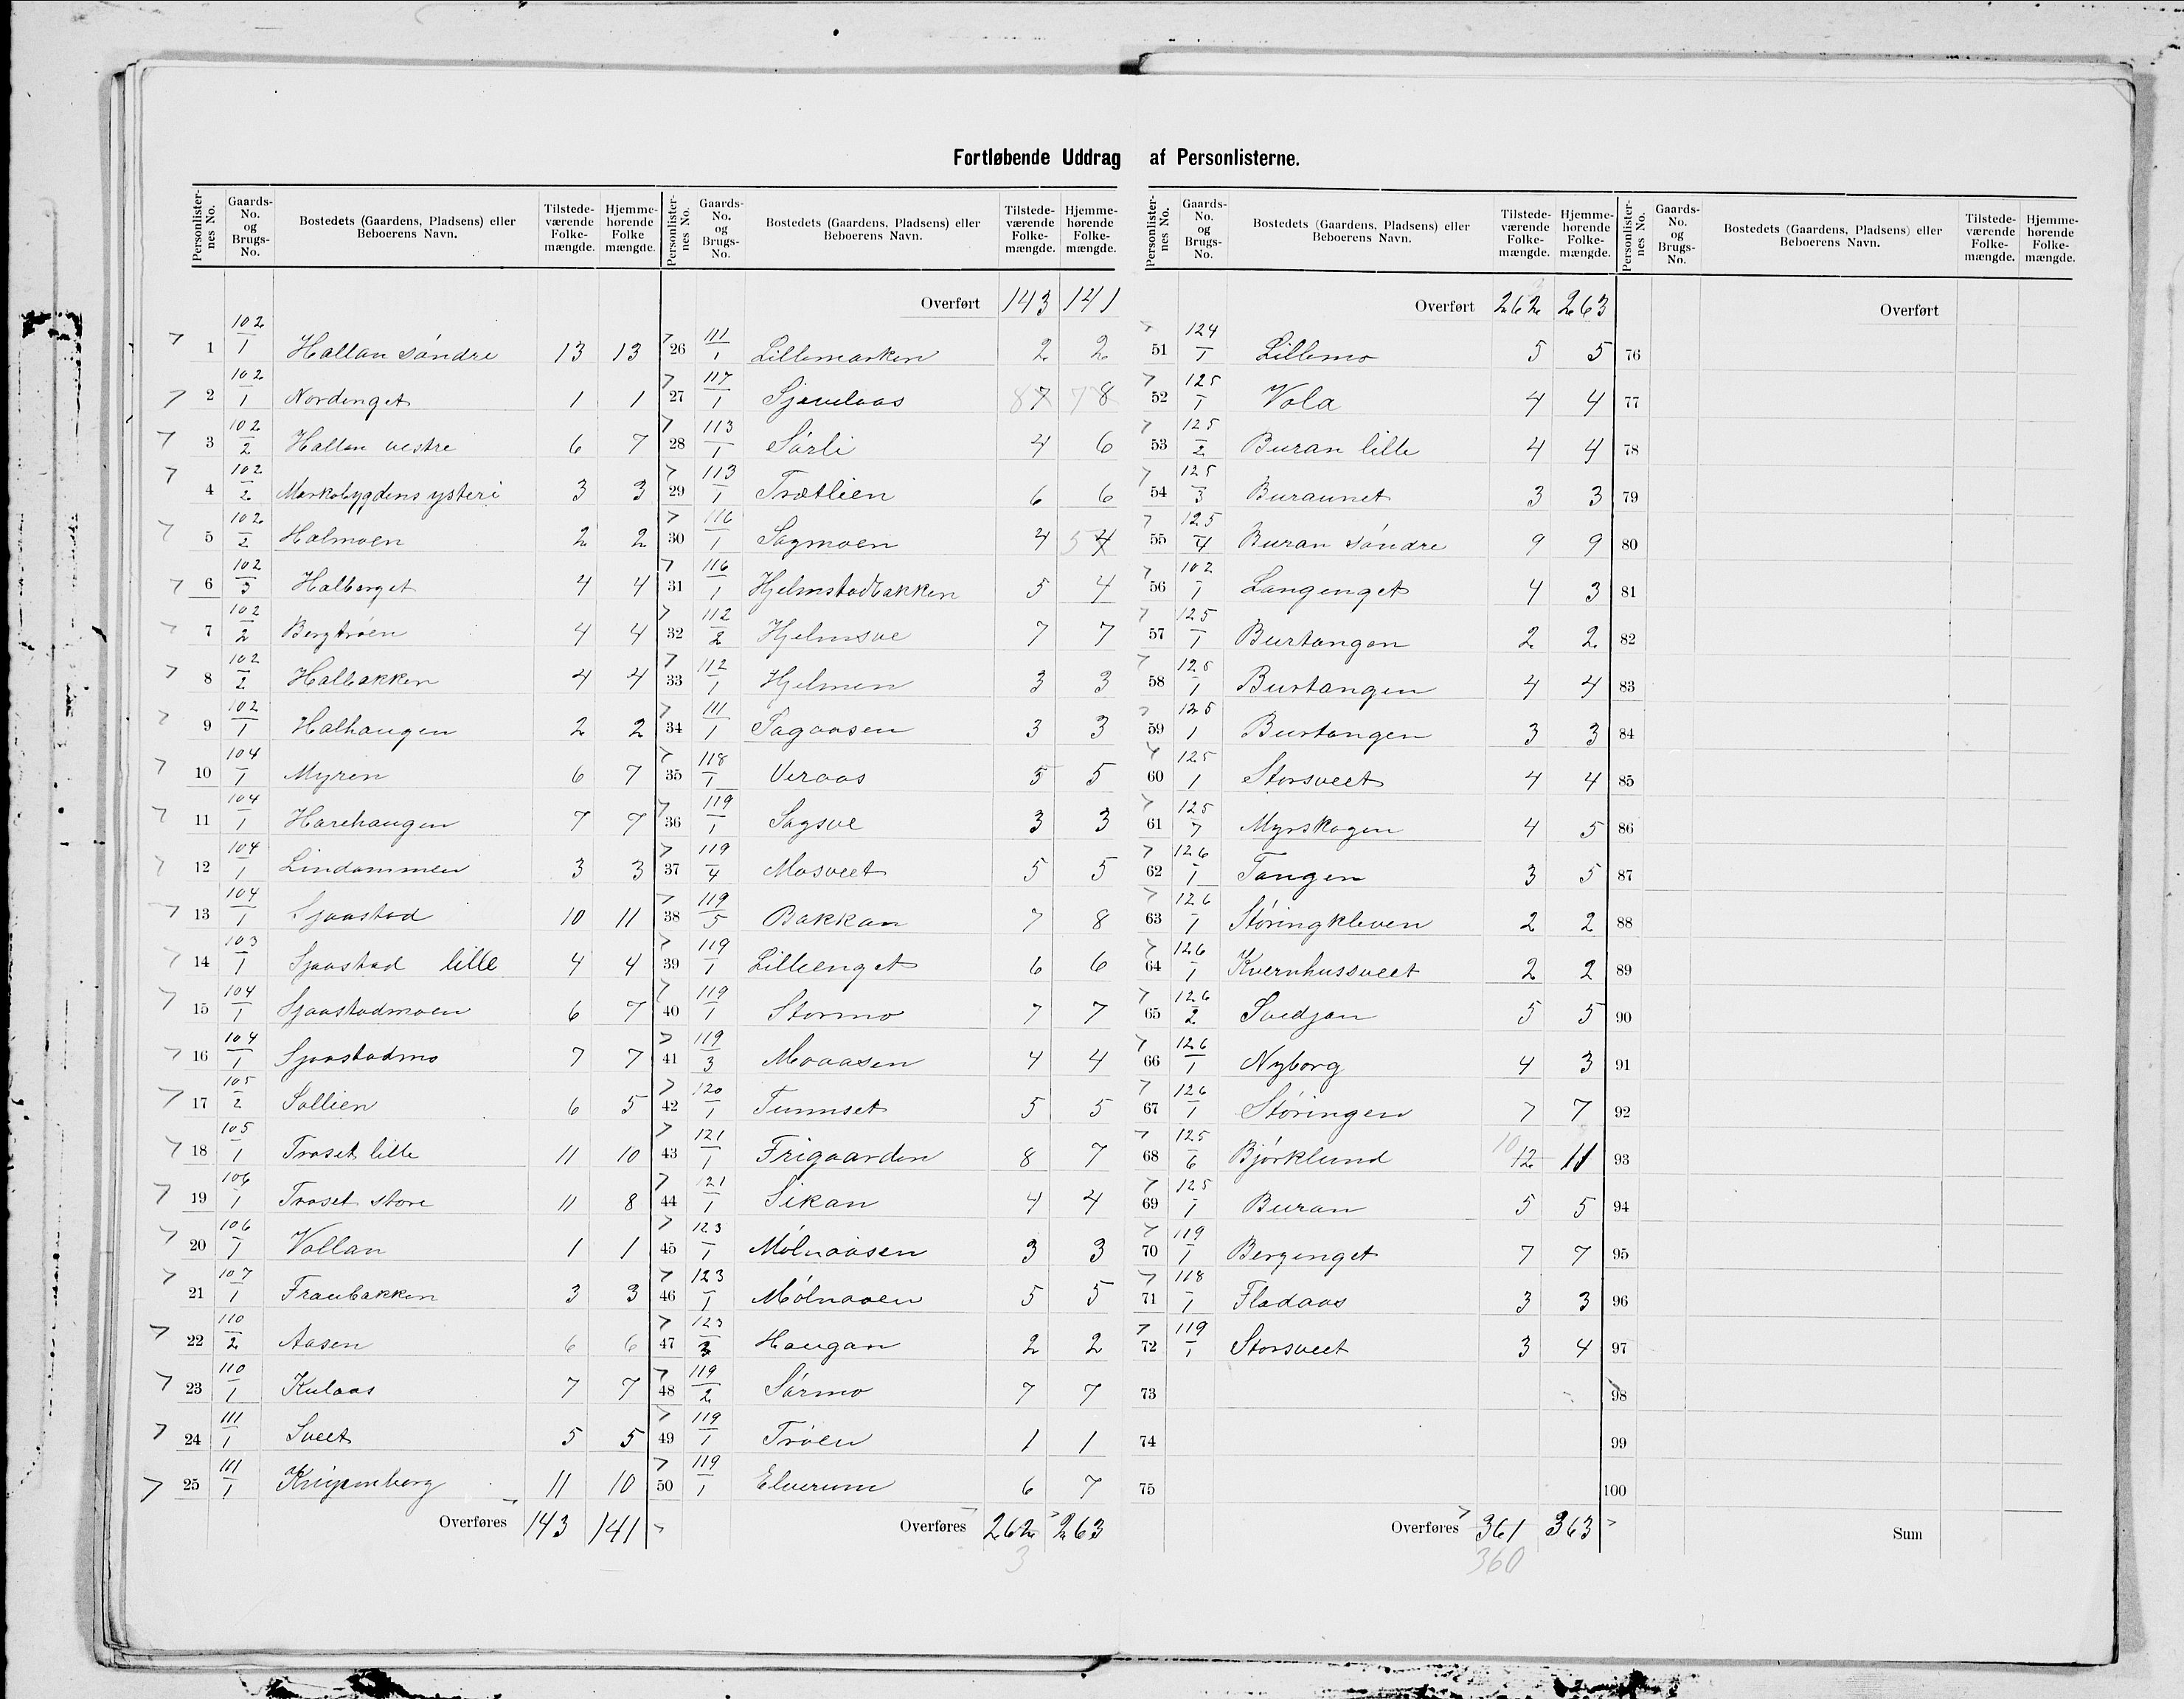 Fortløbende Uddrag af Personlisterne.
Personlister-nes No. Gaards-No. og Brugs-No. Bostedets (Gaardens, Pladsens) eller Beboerens Navn. Tilstede-værende Folke-mængde. Hjemme-hørende Folke mængde.
1 102/1 Hallan søndre 13 13
2 102/1 Nordenget 1 1
3 102/2 Hallan vestre 6 7
4 102/2 Markabygdens ysteri 3 3
5 102/2 Halmoen 2 2
6 102/3 Halberget 4 4
7 102/2 Bergtrøen 4 4
8 102/2 Halbakken 4 4
9 102/1 Halhaugen 2 2
10 104/1 Myren 6 7
11 104/1 Harehaugen 7 7
12 104/1 Lindammen 3 3
13 104/1 Sjaastad 10 11
14 103/1 Sjaastad lille 4 4
15 104/1 Sjaastadmoen 6 7
16 104/1 Sjaastadmo 7 7
17 105/2 Sollien 6 5
18 105/1 Troset lille 11 10
19 106/1 Troset store 11 8
20 106/1 Vollan 1 1
21 107/1 Traubakken 3 3
22 110/2 Aasen 6 6
23 110/1 Kulaas 7 7
24 111/1 Sveet 5 5
25 111/1 Knipenberg 11 10
Overføres 143 141
Personlister-nes No. Gaards-No. og Brugs-No. Bostedets (Gaardens, Pladsens) eller Beboerens Navn. Tilstede-værende Folke-mængde. Hjemme-hørende Folke-mængde.
Overført 143 141
26 111/1 Lillemarken 2 2
27 117/1 Sjevelaas 8 7 7 8
28 113/1 Sørli 4 6
29 113/1 Trætlien 6 6
30 116/1 Sagmoen 4 5 4
31 116/1 Hjelmstadbakken 5 4
32 112/2 Hjelmsve 7 7
33 112/1 Hjelmen 3 3
34 111/1 Sagaasen 3 3
35 118/1 Veraas 5 5
36 119/1 Sagsve 3 3
37 119/4 Mosveet 5 5
38 119/5 Bakkan 7 8
39 119/1 Lilleenget 6 6
40 119/1 Stormo 7 7
41 119/3 Moaasen 4 4
42 120/1 Tunnset 5 5
43 121/1 Frigaarden 8 7
44 121/1 Sikan 4 4
45 123/1 Mølnaasen 3 3
46 123/1 Mølnaaen 5 5
47 123/3 Haugan 2 2
48 119/2 Sørmo 7 7
49 119/1 Trøen 1 1
50 119/1 Elverum 6 7
Overføres 262 263
3
Personlister-nes No. Gaards-No. og Brugs-No. Bostedets (Gaardens, Pladsens) eller Beboerens Navn. Tilstede-værende Folke-mængde. Hjemme-hørende Folke-mængde.
Overført 262 263
51 124/1 Lillemo 5 5
52 125/1 Vola 4 4
53 125/2 Buran lille 4 4
54 125/3 Buraunet 3 3
55 125/4 Buran søndre 9 9
56 102/1 Langenget 4 3
57 125/1 Burtangen 2 2
58 125/1 Burtangen 4 4
59 125/1 Burtangen 3 3
60 125/1 Storsveet 4 4
61 125/7 Myrskogen 4 5
62 126/1 Tangen 3 5
63 126/1 Støringkleven 2 2
64 126/1 Kvernhussveet 2 2
65 126/2 Svedjan 5 5
66 126/1 Nyborg 4 3
67 126/1 Støringen 7 7
68 125/6 Bjørklund 10 12 11
69 125/1 Buran 5 5
70 119/1 Bergenget 7 7
71 118/1 Fladaas 3 3
72 119/1 Storsveet 3 4
73
74
75
Overføres 361 363
360
Personlister-nes No. Gaards-No. og Brugs-No. Bostedets (Gaardens, Pladsens) eller Beboerens Navn. Tilstede-værende Folke-mængde. Hjemme-hørende Folke-mængde.
Overført
76
77
78
79
80
81
82
83
84
85
86
87
88
89
90
91
92
93
94
95
96
97
98
99
100
Sum